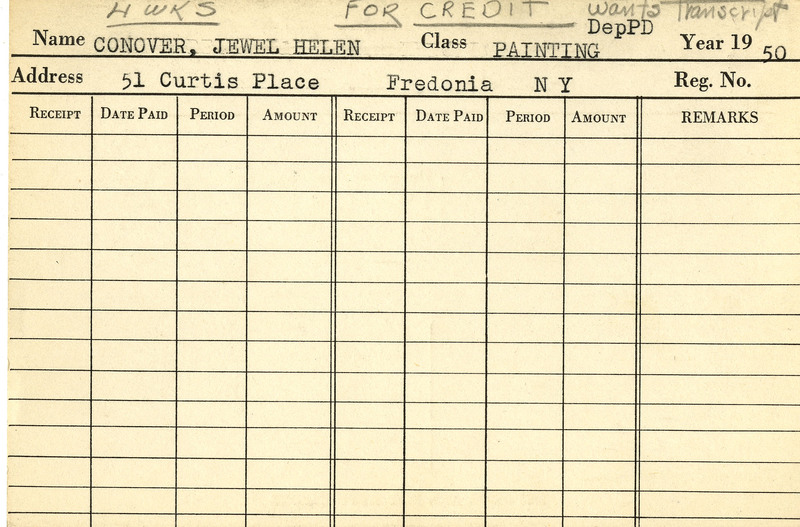 4 WKS FOR CREDIT wants Transcript
DepPD
Name CONOVER, JEWEL HELEN Class PAINTING Year 19 50
Address 51 Curtis Place Fredonia N Y Reg. No.
RECEIPT DATE PAID PERIOD AMOUNT RECEIPT DATE PAID PERIOD AMOUNT REMARKS